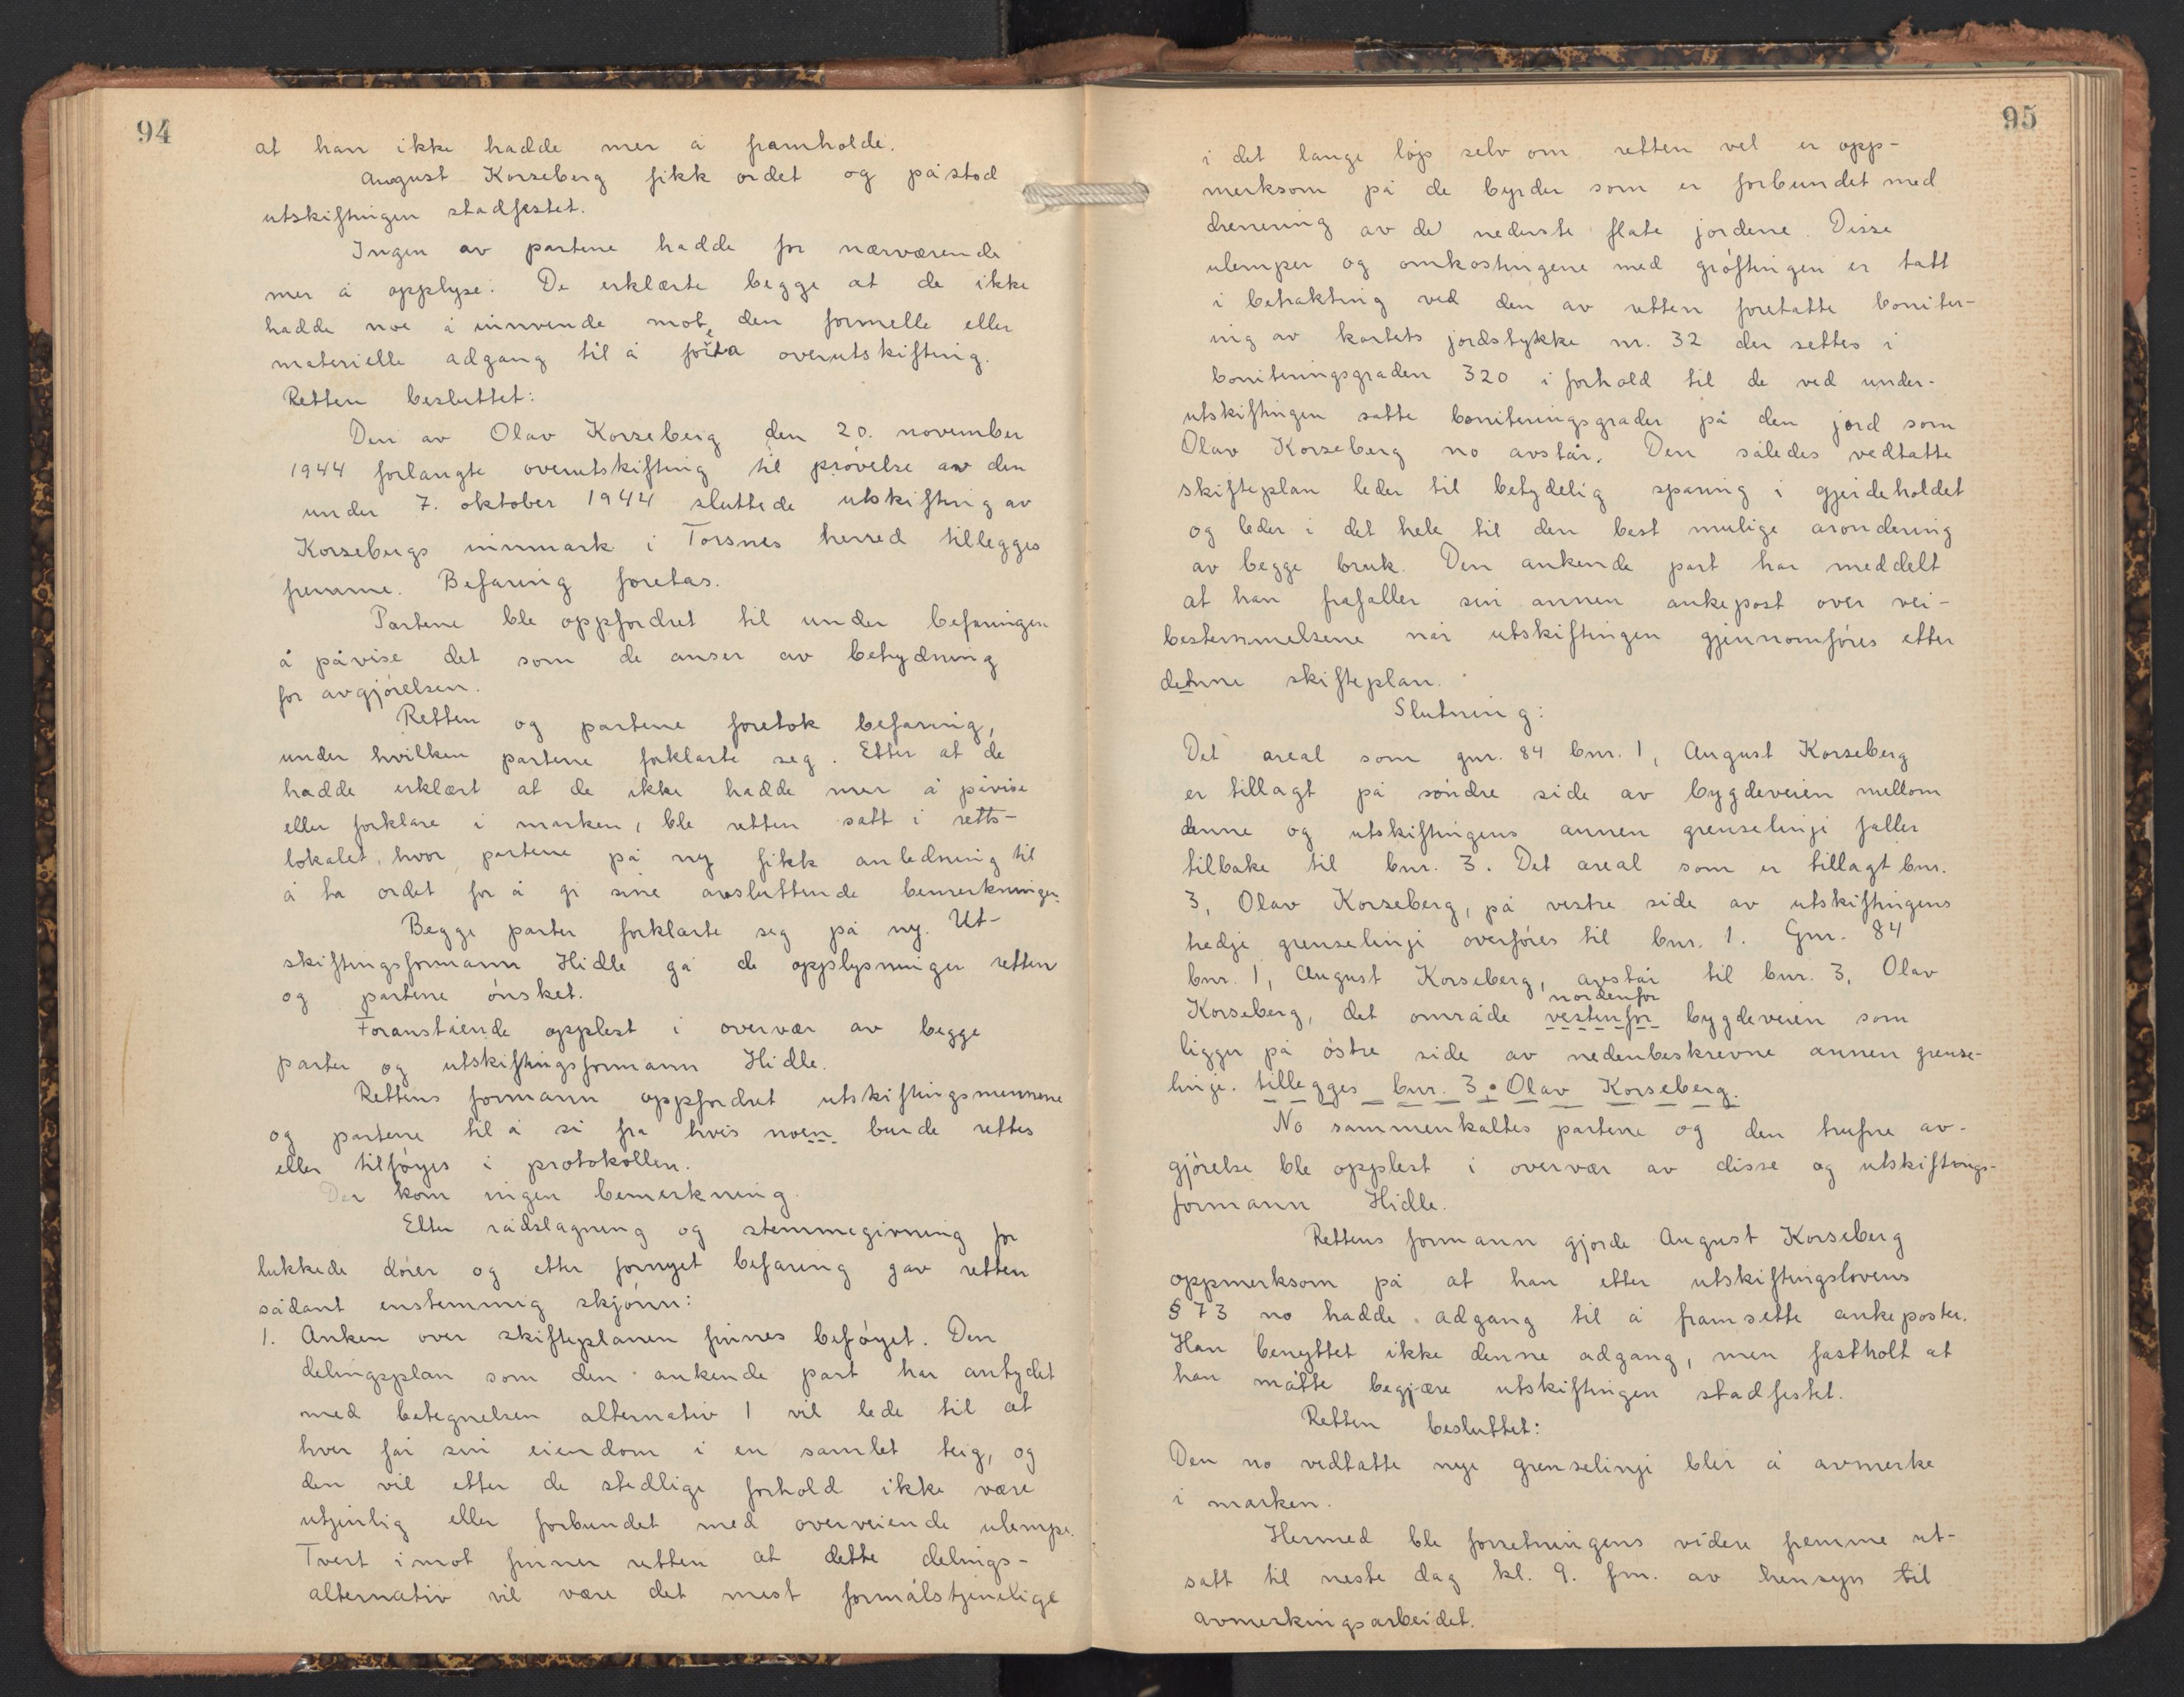 94
at han ikke hadde mer å framholde.
August Korseberg fikk ordet og påstod
utskiftingen stadfestet.
Ingen av partene hadde for nærværende
mer å opplyse. De erklærte begge at de ikke
hadde noe å innvende mot den formelle eller
materielle adgang til å foreta overutskifting.
Retten besluttet:
Den av Olav Korseberg den 20. november
1944 forlangte overutskifting til prøvelse av den
under 7. oktober 1944 sluttede utskifting av
Korsebergs innmark i Torsnes herred tillegges
fremme. Befaring foretas.
Partene ble oppfordret til under befaringen
å påvise det som de anser av betydning
for avgjørelsen.
Retten og partene foretok befaring,
under hvilken partene forklarte seg. Etter at de
hadde erklært at de ikke hadde mer å påvise
eller forklare i marken, ble retten satt i retts-
lokalet, hvor partene på ny fikk anledning til
å ta ordet for å gi sine avsluttende bemerkninger.
Begge parter forklarte seg på ny. Ut-
skiftingsformann Hidle ga de opplysninger retten
og partene ønsket.
Foranstående opplest i overvær av begge
parter og utskiftingsformann Hidle.
Rettens formann oppfordret utskiftingsmennene
og partene til å si fra hvis noen burde rettes
eller tilføyes i protokollen.
Der kom ingen bemerkning.
Etter rådslagning og stemmegivning for
lukkede dører og etter fornyet befaring gav retten
sådant enstemmig skjønn:
1. Anken over skifteplanen finnes beføyet. Den
delingsplan som den ankende part har antydet
med betegnelsen alternativ 1 vil lede til at
hver får sin eiendom i en samlet teig, og
den vil etter de stedlige forhold ikke være
utjenlig eller forbundet med overveiende ulempe.
Tvert imot finner retten at dette delings-
alternativ vil være det mest formålstjenelige
95
i det lange løp selv om retten vel er opp-
merksom på de byrder som er forbundet med
drenering av de nederste flate jordene. Disse
ulemper og omkostingene med grøftingen er tatt
i betraktning ved den av retten foretatte boniter-
ing av kartets jordstykke nr. 32 der settes i
boniteringsgraden 320 i forhold til de ved under-
utskiftingen satte boniteringsgrader på den jord som
Olav Korseberg no avstår. Den således vedtatte
skifteplan leder til betydelig sparing i gjerdeholdet
og leder i det hele til den best mulige arondering
av begge bruk. Den ankende part har meddelt
at han frafaller sin annen ankepost over vei-
bestemmelsene når utskiftingen gjennomføres etter
denne skifteplan.
Slutning:
Det areal som gnr. 84 bnr. 1, August Korseberg
er tillagt på søndre side av bygdeveien mellom
denne og utskiftingens annen grenselinje faller
tilbake til bnr. 3. Det areal som er tillagt bnr.
3, Olav Korseberg, på vestre side av utskiftingens
tredje grenselinje overføres til bnr. 1. Gnr. 84
bnr. 1, August Korseberg, avstår til bnr. 3, Olav
nordenfor
Korseberg, det område vestenfor bygdeveien som
ligger på østre side av nedenbeskrevne annen grense-
linje. tillegges bnr. 3. Olav Korseberg.
No sammenkaltes partene og den trufne av-
gjørelse ble opplest i overvær av disse og utskiftings-
formann Hidle.
Rettens formann gjorde August Korseberg
oppmerksom på at han etter utskiftingslovens
§ 73 no hadde adgang til å framsette ankeposter.
Han benyttet ikke denne adgang, men fastholt at
han måtte begjære utskiftingen stadfestet.
Retten besluttet:
Den no vedtatte nye grenselinje blir å avmerke
i marken.
Hermed ble forretningens videre fremme ut-
satt til neste dag kl. 9. fm. av hensyn til
avmerkingsarbeidet.